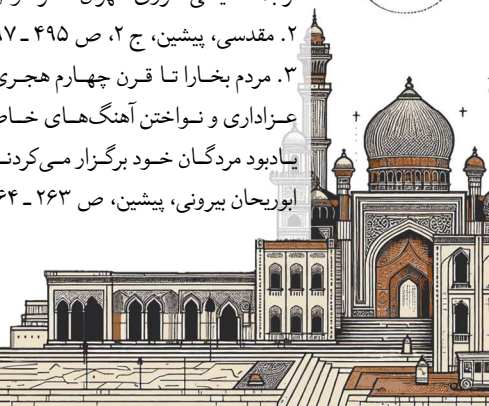 ۲. مقدسی، پیشین، ج ۲، ص ۴۹۵ ـ
۳. مردم بخارا تا قرن چهارم هجری
عزاداری و نواختن آهنگ‌های
یادبود مردگان خود برگزار می‌کردند
ابوریحان بیرونی، پیشین، ص ۲۶۳ ـ